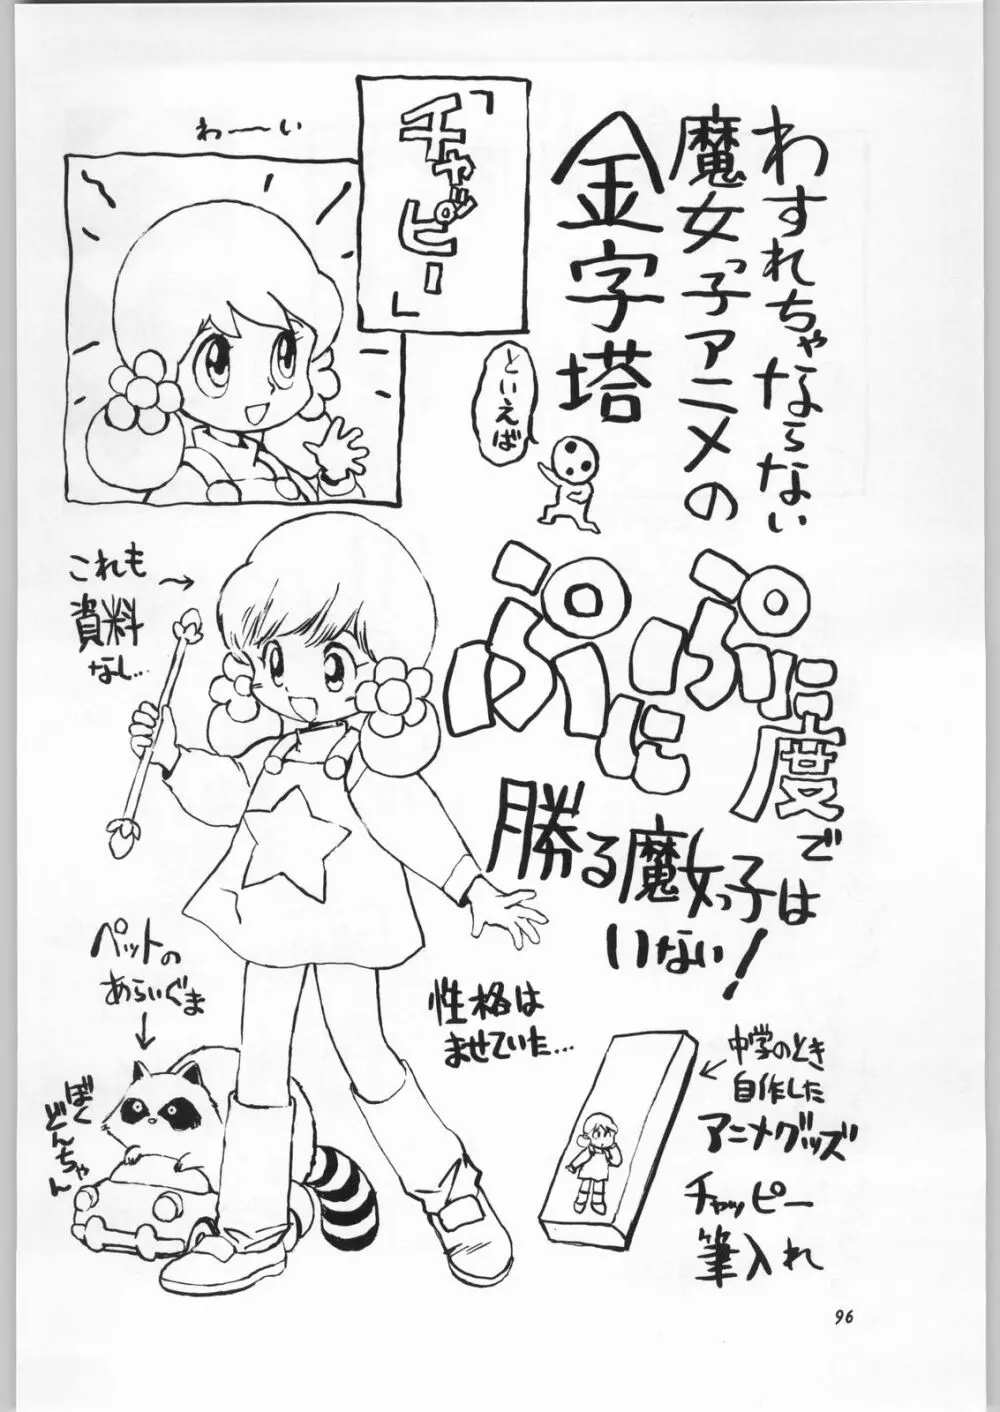 わすれちゃならない
魔女っ子アニメの
金字塔
「チャッピー」
わーい
といえば
ぷにぷに度では
勝る魔女っ子は
いない!
これも
資料
なし…
ペットの
あらいぐま
ぼく
どんちゃん
性格は
ませていた…
中学のとき
自作した
アニメグッズ
チャッピー
筆入れ
96